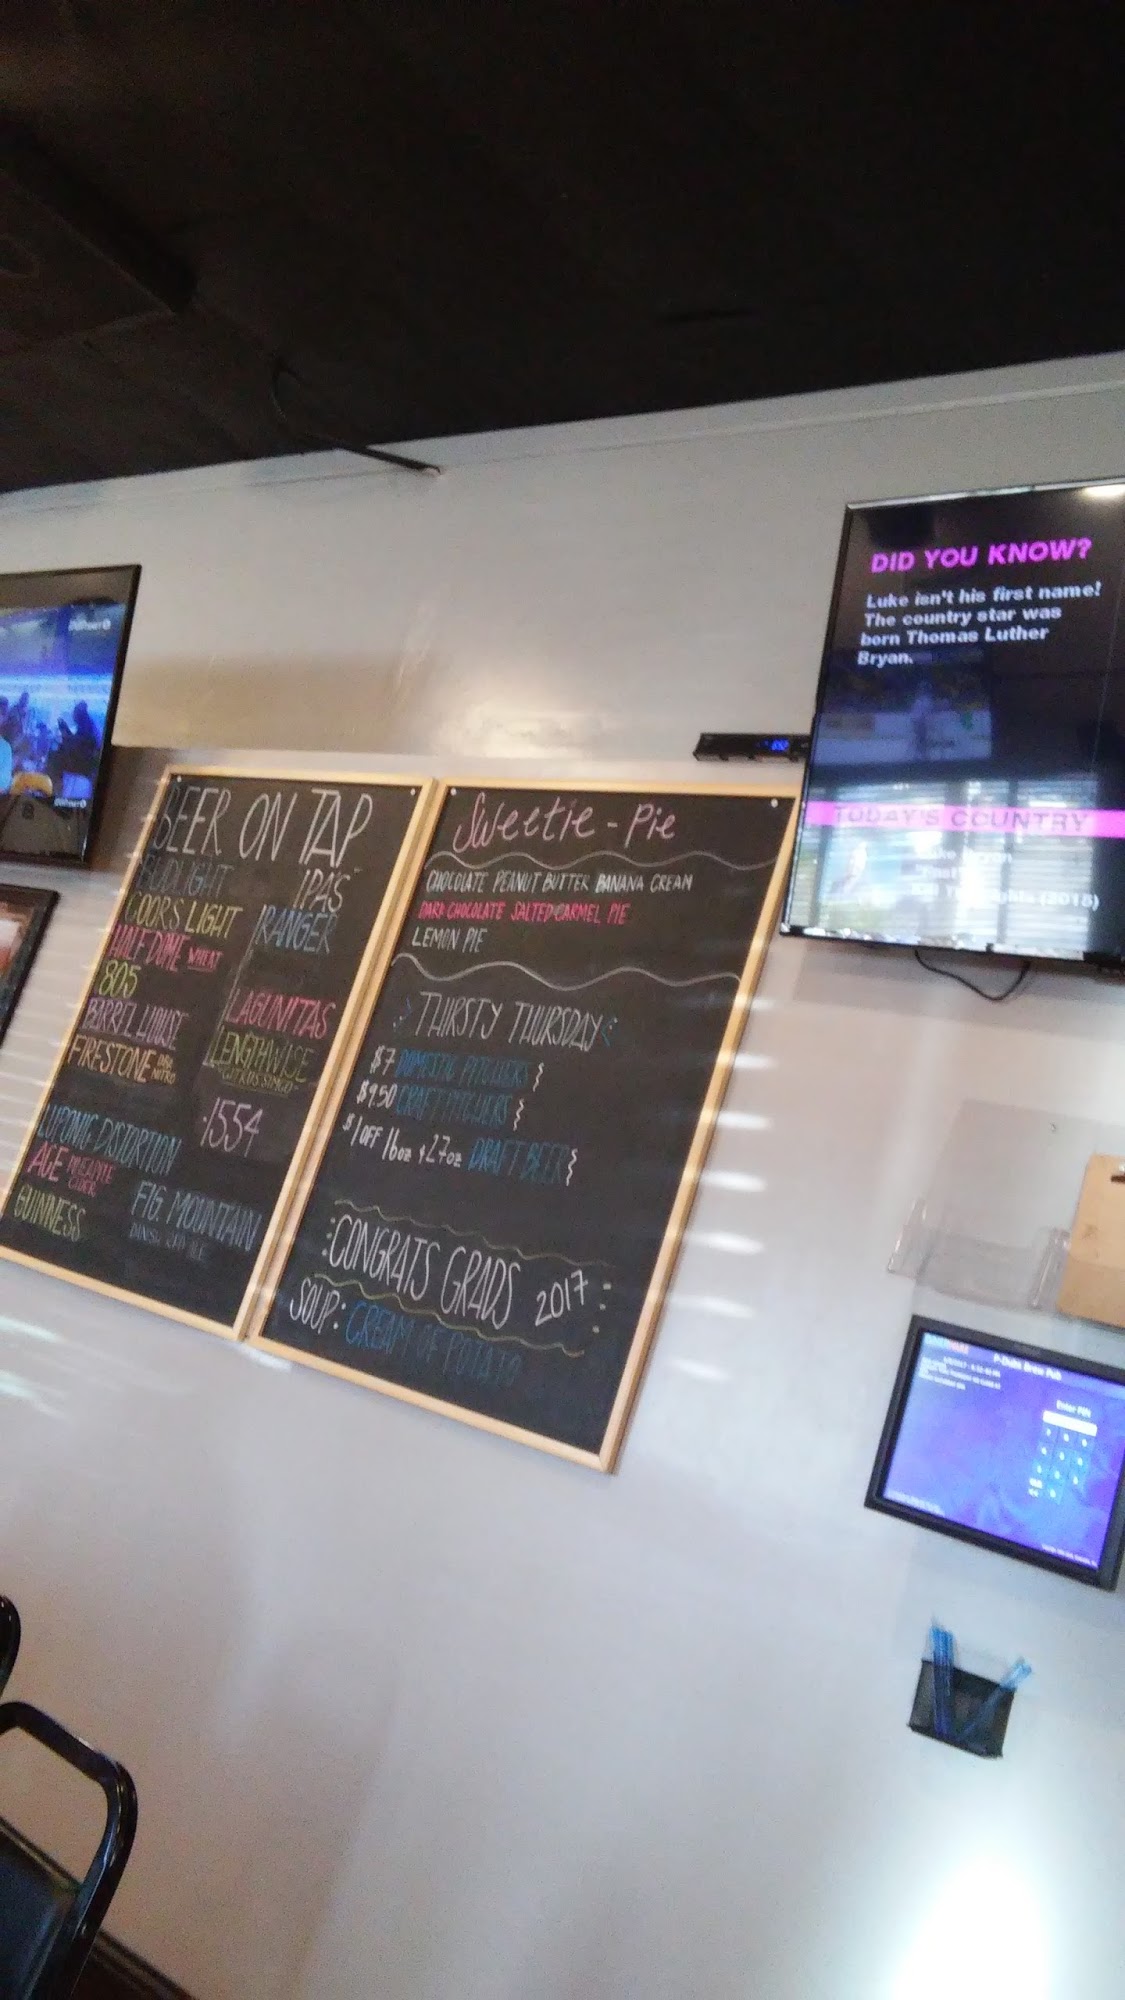 BEER ON TAP
BUDLIGHT
COORS LIGHT
HALF DOME WHEAT
805
BARREL HOUSE
FIRESTONE DBA NITRO
LUPONIC DISTORTION
ACE PINEAPPLE CIDER
GUINNESS
IPA'S
RANGER
LAGUNITAS
LENGTHWISE
CITRUS SINGO
1554
FIG. MOUNTAIN
DANISH RED ALE
Sweetie - Pie
CHOCOLATE PEANUT BUTTER BANANA CREAM
DARK CHOCOLATE SALTED CARMEL PIE
LEMON PIE
THIRSTY THURSDAY
$7 DOMESTIC PITCHERS
$9.50 CRAFT PITCHERS
$1 OFF 16oz + 27oz DRAFT BEER
CONGRATS GRADS 2017
SOUP: CREAM OF POTATO
DID YOU KNOW?
Luke isn't his first name!
The country star was
born Thomas Luther
Bryan.
TODAY'S COUNTRY
Luke Bryan
Kill The Lights (2015)
P-Dubs Brew Pub
Enter PIN